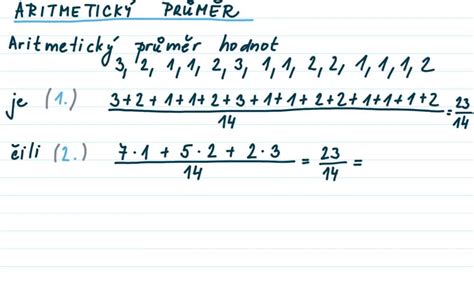 ARITMETICKÝ PRŮMĚR
Aritmetický průměr hodnot
3, 2, 1, 1, 2, 3, 1, 1, 2, 2, 1, 1, 1, 2
je (1.) 3+2+1+1+2+3+1+1+2+2+1+1+1+2/14 = 23/14
čili (2.) 7·1 + 5·2 + 2·3/14 = 23/14 =